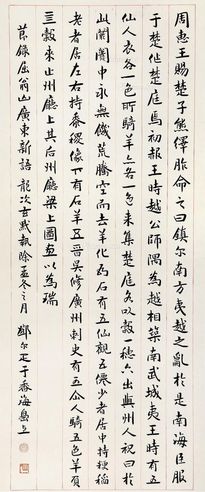 周惠王賜楚子熊惲胙命之曰鎮爾南方夷越之亂於是南海臣服
于楚作楚庭焉初赧王時越公師隅為越相築南武城夷王時有五
仙人衣各一色所騎羊亦各一色來集楚庭各以穀一穗六出與州人祝曰於
此闤闠中永無饑荒騰空而去羊化為石有五仙觀五僊少者居中持粳稻
老者居左右持黍稷像下有石羊五晉吳修廣州刺史有五仙人騎五色羊負
五穀來止州廳上其后州廳梁上圖畫以為瑞
節錄屈翁山廣東新語 龍次戊孟冬之月 鄧爾疋于香海